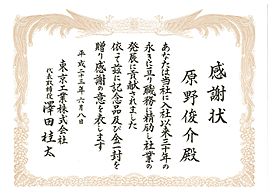 感謝状
原野俊介殿
あなたは当社に入社以来三十年の
永きに亘り職務に精励し社業の
発展に貢献されました
依って茲に記念品及び金一封を
贈り感謝の意を表します
平成二十三年六月八日
東京工業株式会社
代表取締役 澤田桂太